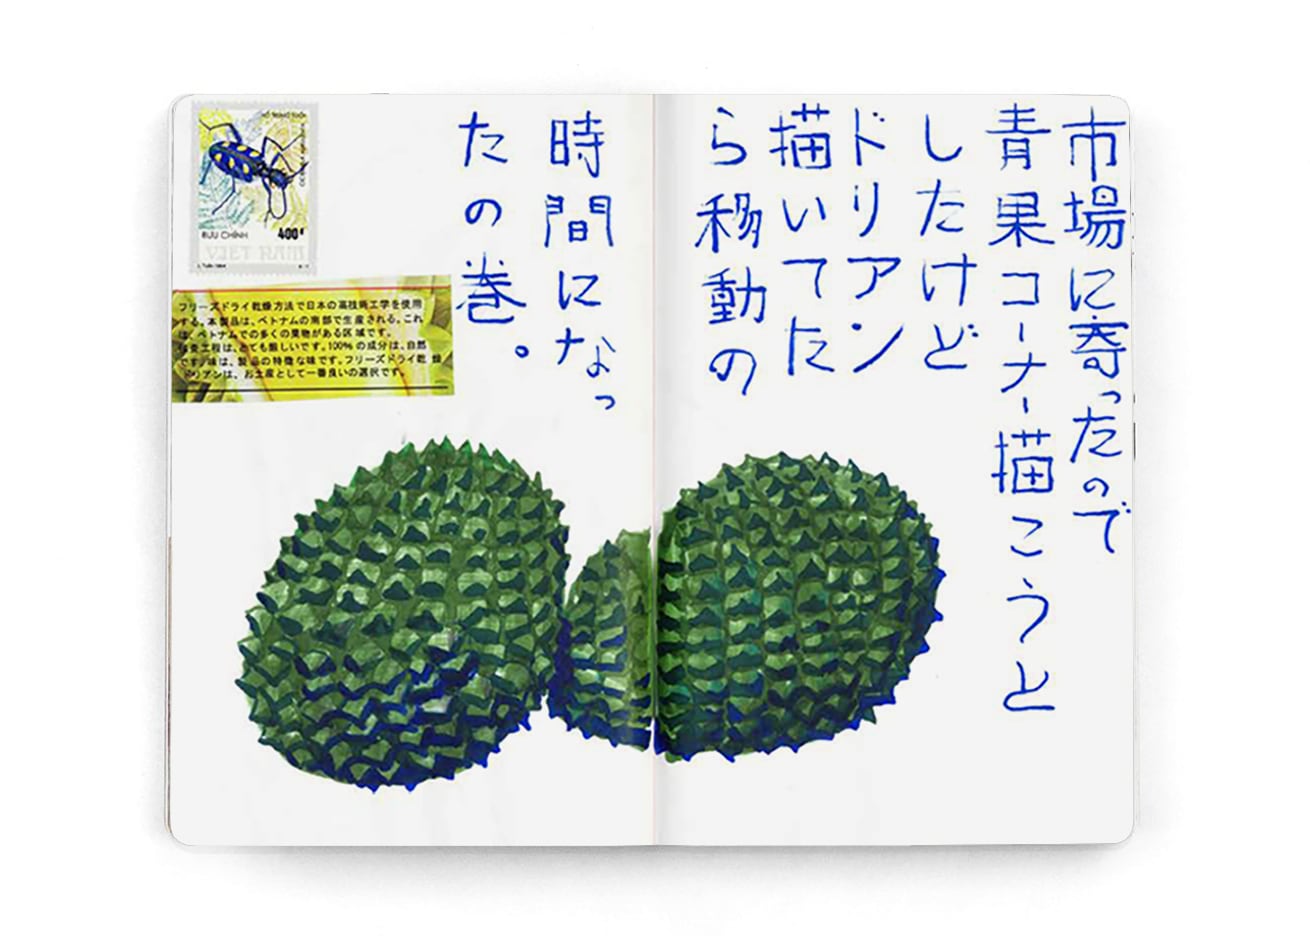 市場に寄ったので
青果コーナー描こうと
したけど
ドリアン
描いてた
ら移動の
時間になっ
たの巻。
BƯU CHÍNH
400đ
VIET NAM
フリーズドライ乾燥方法で日本の高技術工学を使用
する。本製品は、ベトナムの南部で生産される。これ
は、ベトナムでの多くの果物がある区域です。
生産工程は、とても厳しいです。100%の成分は、自然
です。味は、製品の特徴な味です。フリーズドライ乾燥
ドリアンは、お土産として一番良いの選択です。